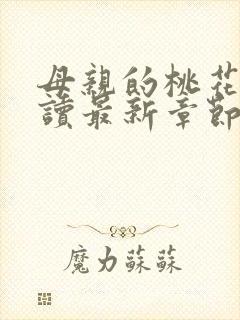 母親的桃花
讀最新章節
魔力蘇蘇